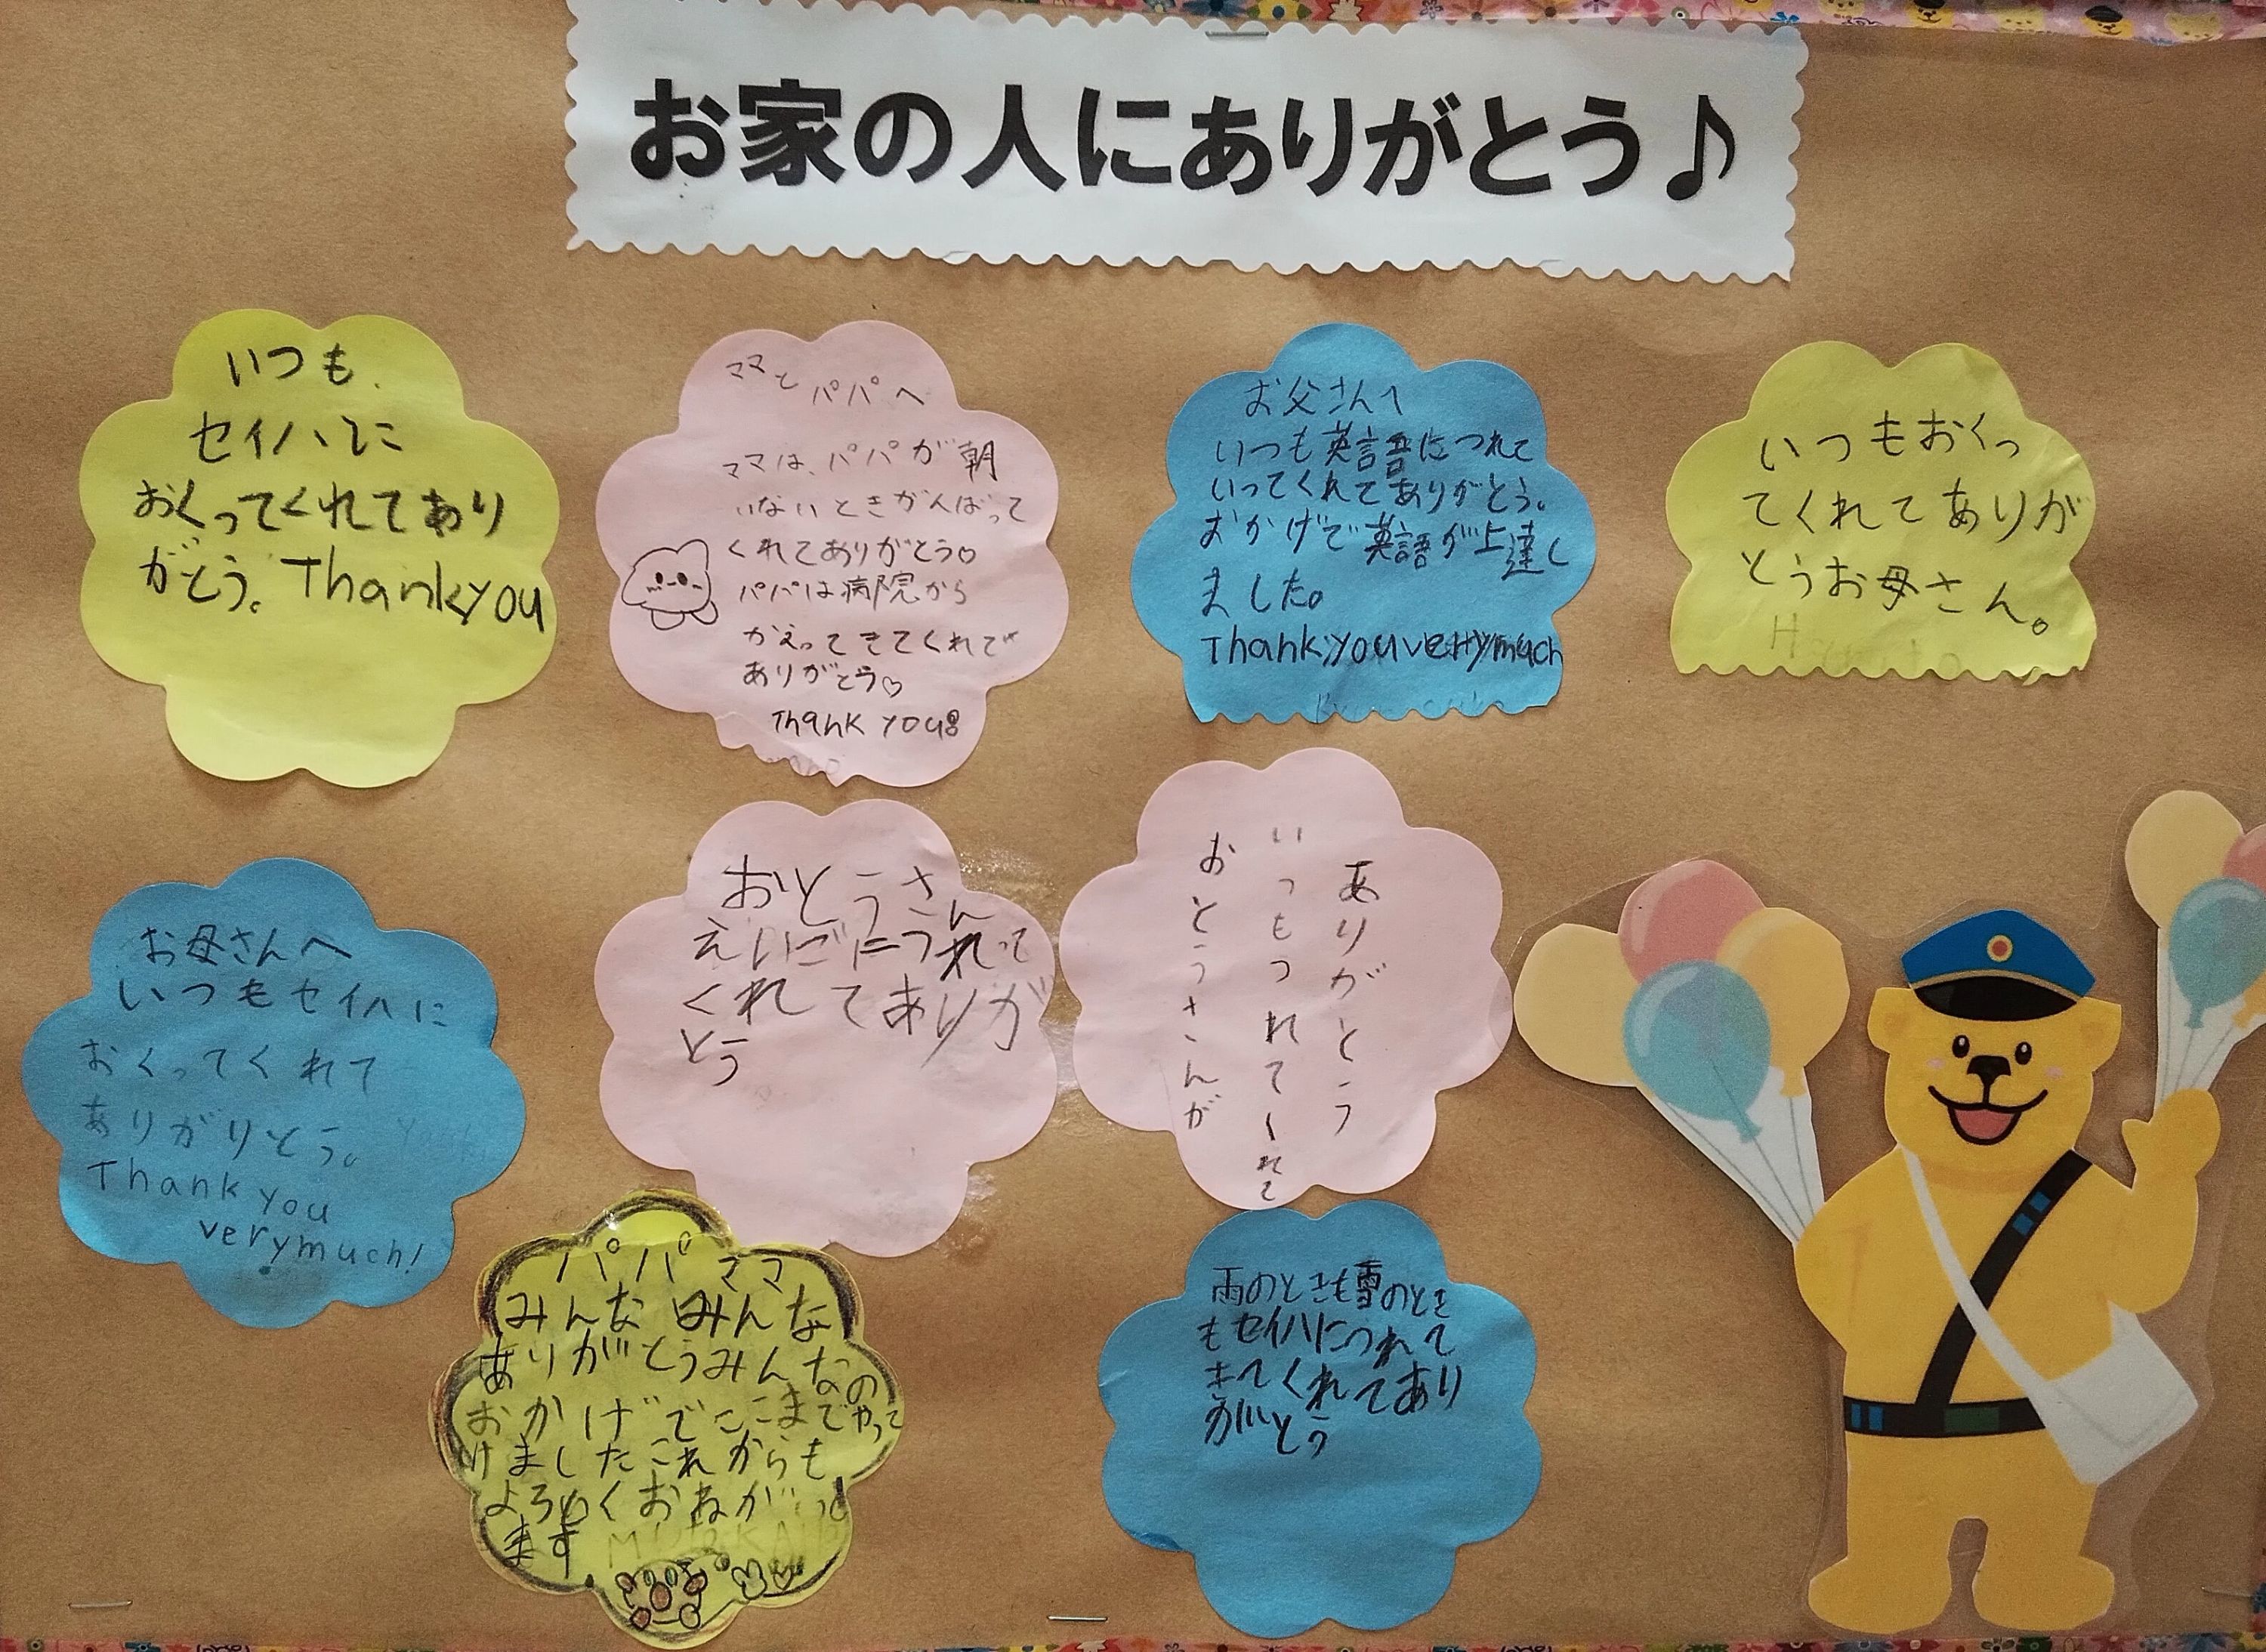 お家の人にありがとう♪
いつも
セイハに
おくってくれてあり
がとう。Thankyou
ママと
パパへ
ママは、パパが朝
いないときがんばって
くれてありがとう♡
パパは病院から
かえってきてくれて
ありがとう♡
Thank you
お父さんへ
いつも英語につれて
いってくれてありがとう。
おかげで英語が上達し
ました。
Thankyouverymuch
いつもおくっ
てくれてありが
とうお母さん。
お母さんへ
いつもセイハに
おくってくれて
ありがりとう。
Thank you
verymuch!
おとうさん
えいごにつれて
くれてありが
とう
ありがとう
いつもつれてくれて
おとうさんが
パパママ
みんなみんな
ありがとうみんなの
おかげでここまでやって
けましたこれからも
よろしくおねがい
ます
雨のときも雪のとき
もセイハにつれて
きてくれてあり
がとう